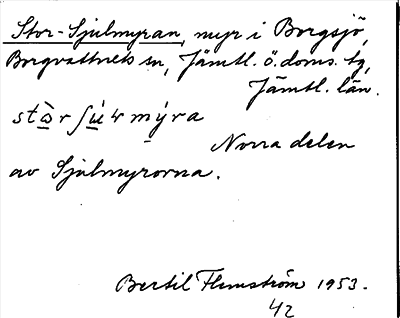 Stor-Sjulmyran, myr i Borgsjö,
Borgvattnets sn, Jämtl. ö. doms. tg,
Jämtl. län.
Norra delen
av Sjulmyrorna.
Bertil Flemström 1953.
42